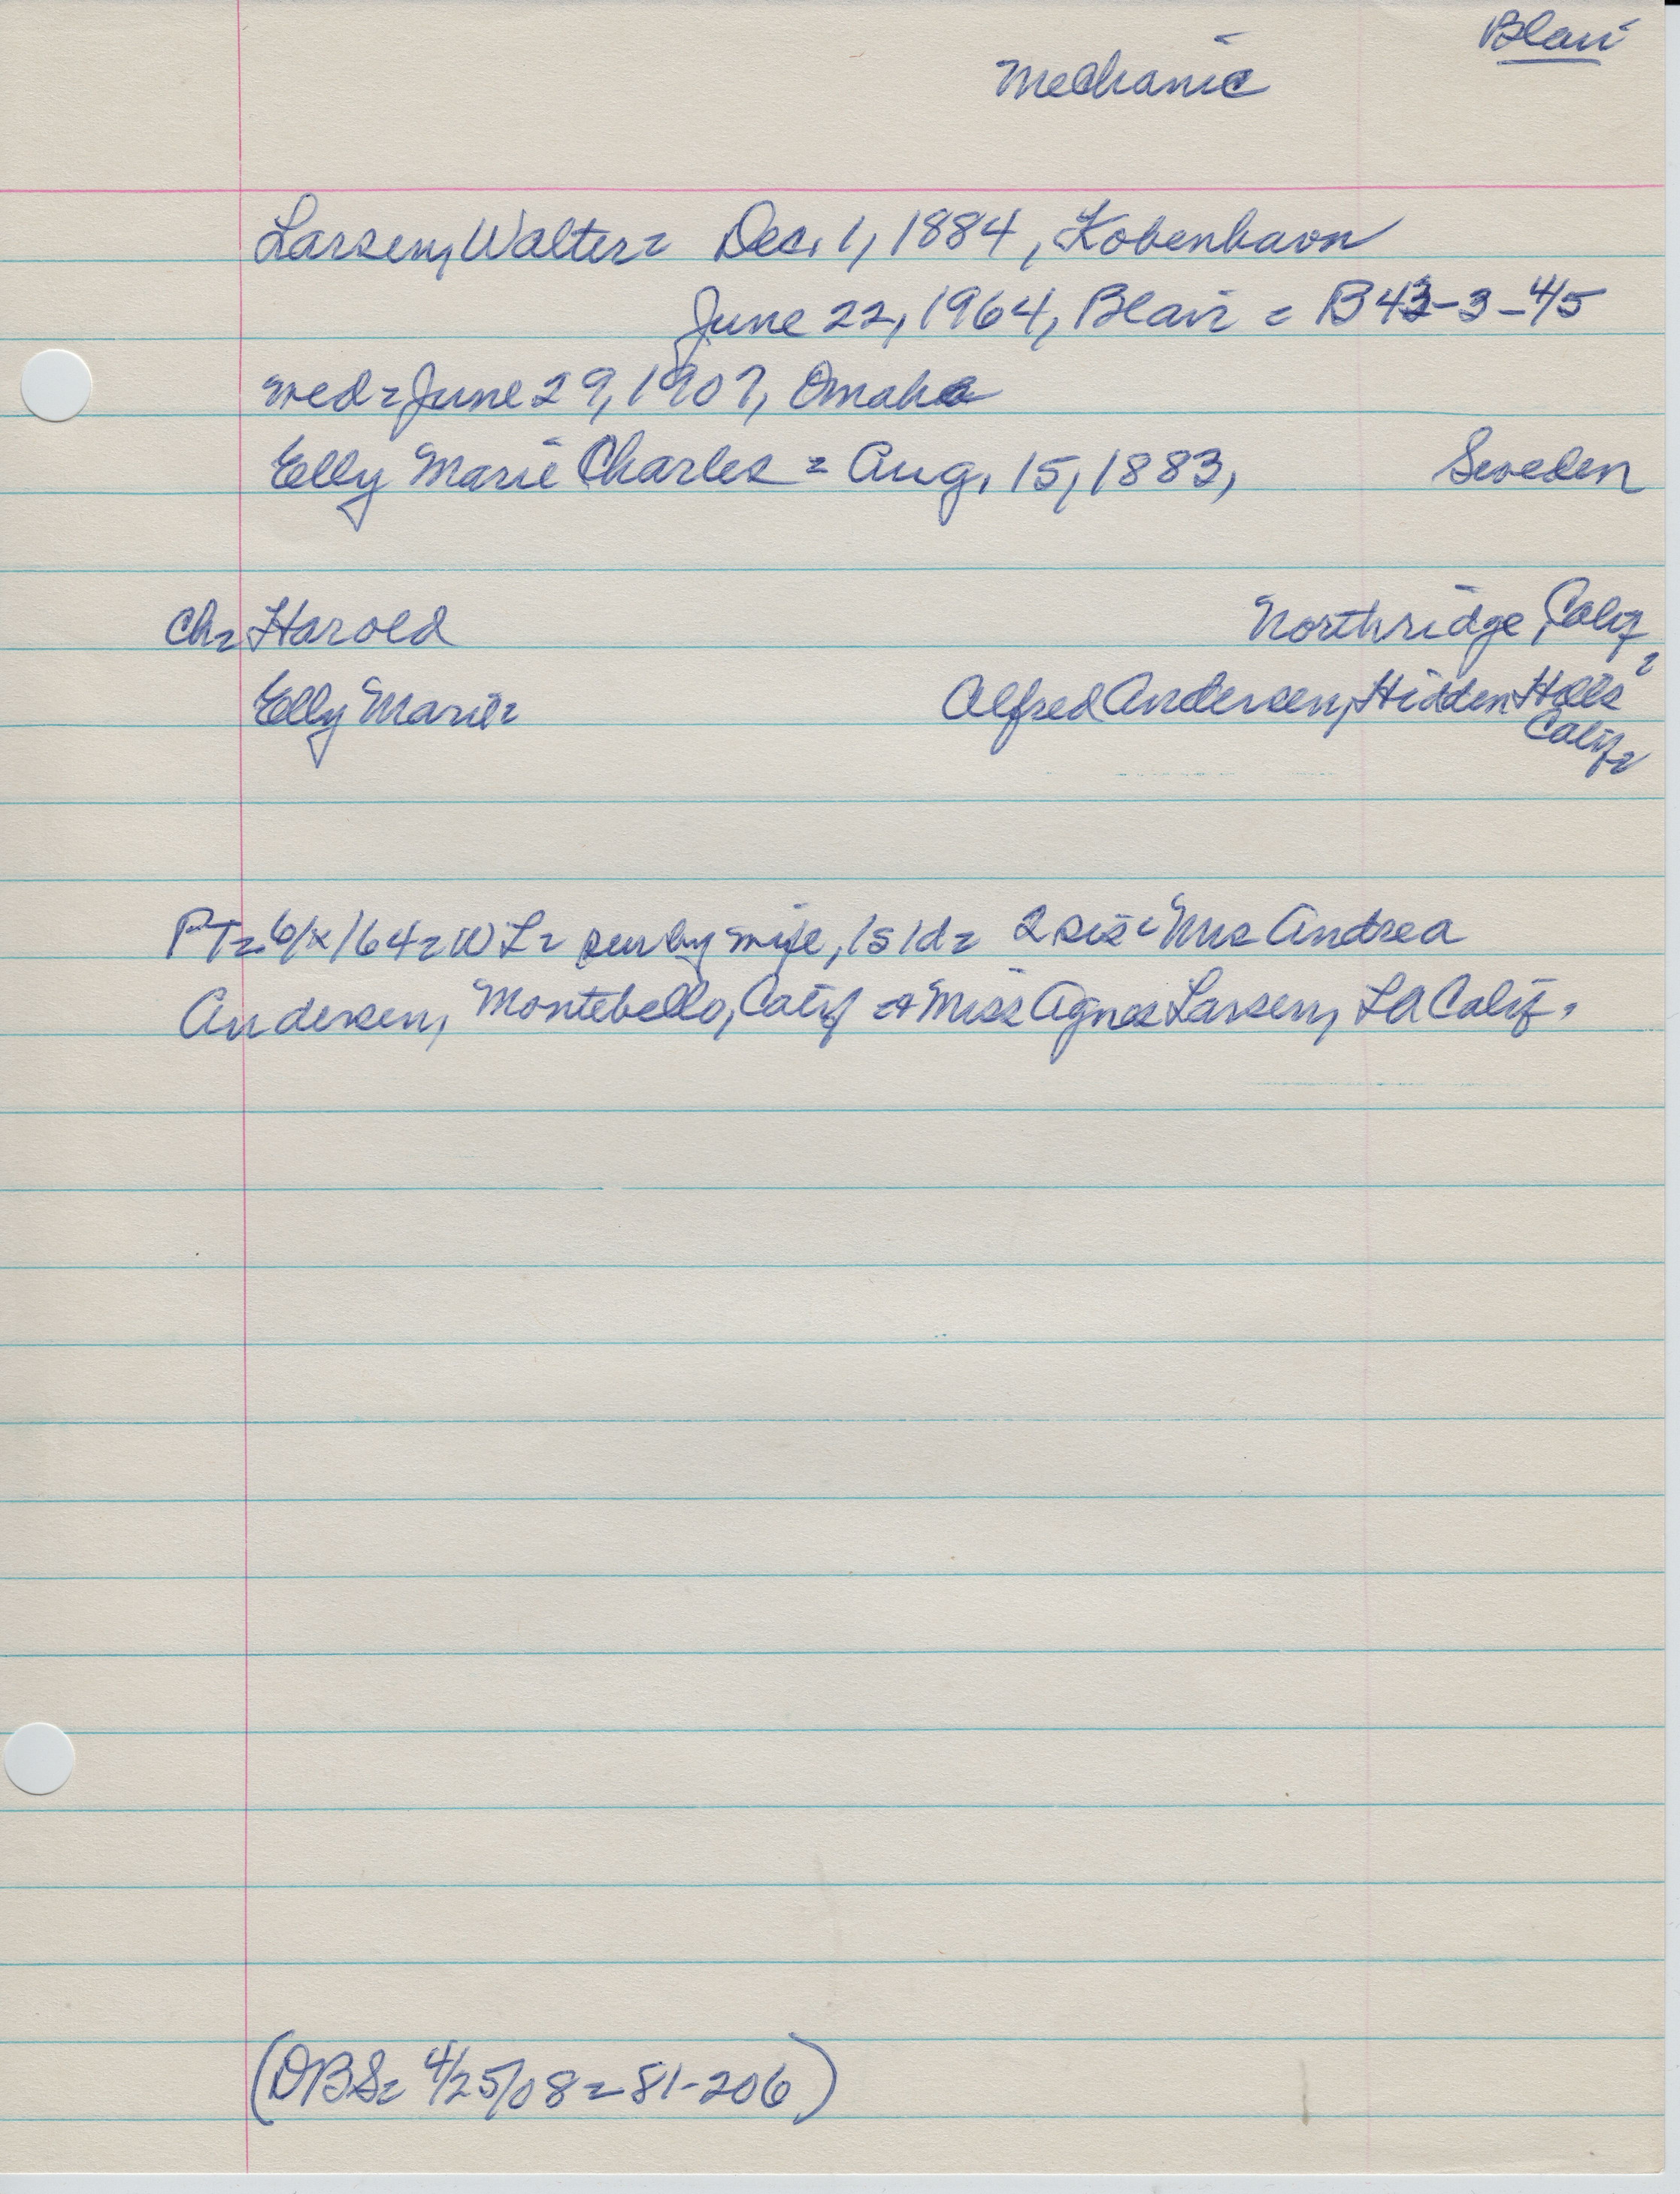 Blair
Mechanic
Larsen, Walter = Dec. 1, 1884, Kobenhavn
June 22, 1964, Blair = B43-3-4/5
wed = June 29, 1907, Omaha
Elly Marie Charles = Aug. 15, 1883, Sweden
Ch = Harold Northridge, Calif
Elly Marie = Alfred Andersen, Hidden Hills,
Calif =
PT = 6/x/64 = WL = sur by wife, 1s 1d = 2 sis = Mrs Andrea
Andersen, Montebello, Calif + Miss Agnes Larsen, LA Calif.
(DBS = 4/25/08 = 81-206)